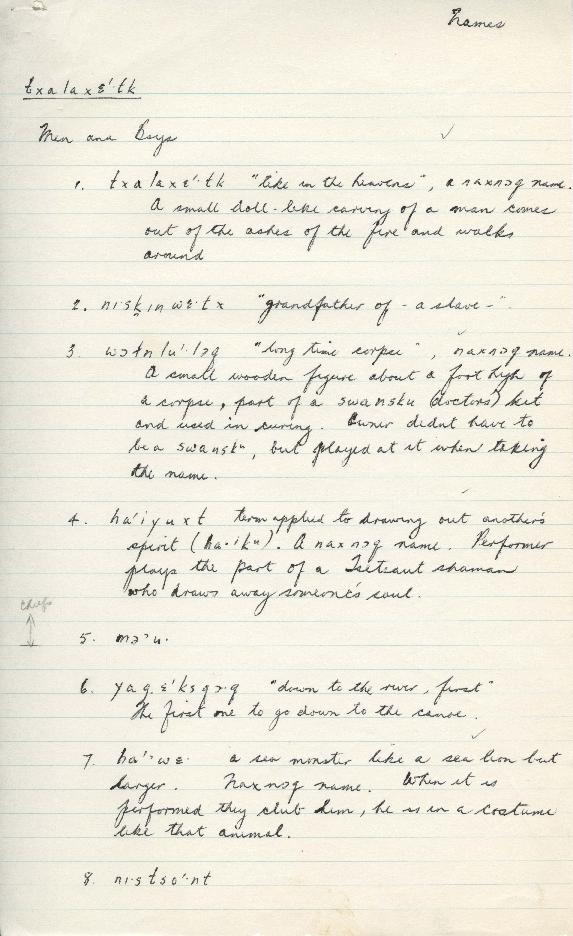 Names
txalaxɛ'·tk
Men and Boys
1. txalaxɛ'·tk "like in the heavens", a naxnɔq name.
A small doll-like carving of a man comes
out of the ashes of the fire and walks
around
2. ni·sḳınwɛ·tx "grandfather of - a slave-".
3. "long time corpse", naxnɔq name.
A small wooden figure about a foot high of
a corpse, part of a swansku (doctors) kit
and used in curing. Owner didnt have to
be a swanskᵘ, but played at it when taking
the name.
4. ha'iyuxt term applied to drawing out another's
spirit (ha·ikᵘ). A naxnɔq name. Performer
plays the part of a Tsetsaut shaman
who draws away someone's soul.
chiefs
5. mɔ'u·
6. yag.ɛ'ksqɔ·q "down to the river, first"
The first one to go down to the canoe.
7. ha'·wɛ· a sea monster like a sea lion but
larger. Naxnɔq name. When it is
performed they club him, he is in a costume
like that animal.
8. ni·stso'·nt